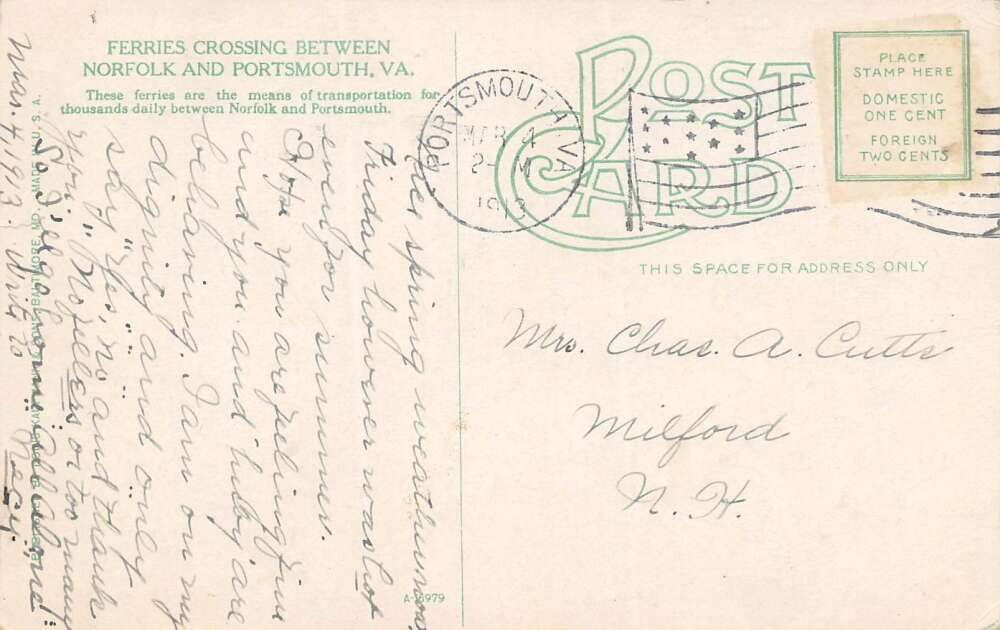 FERRIES CROSSING BETWEEN
NORFOLK AND PORTSMOUTH, VA.
These ferries are the means of transportation for
thousands daily between Norfolk and Portsmouth.
POST
CARD
PORTSMOUTH VA
MAR 4
1913
PLACE
STAMP HERE
DOMESTIC
ONE CENT
FOREIGN
TWO CENTS
THIS SPACE FOR ADDRESS ONLY
Mrs. Chas. A. Cutts
Milford
N. H.
spring weather now,
Friday however was hot
even for summer.
Hope you are feeling fine
and you and "hubby" are
behaving. I am on my
dignity and only
say "yes," "no" and thank
you" No fellers or too many
So I'll go home all alone!
Mar. 4, 1913. Write to
MADE IN U. S. A.
A-8979